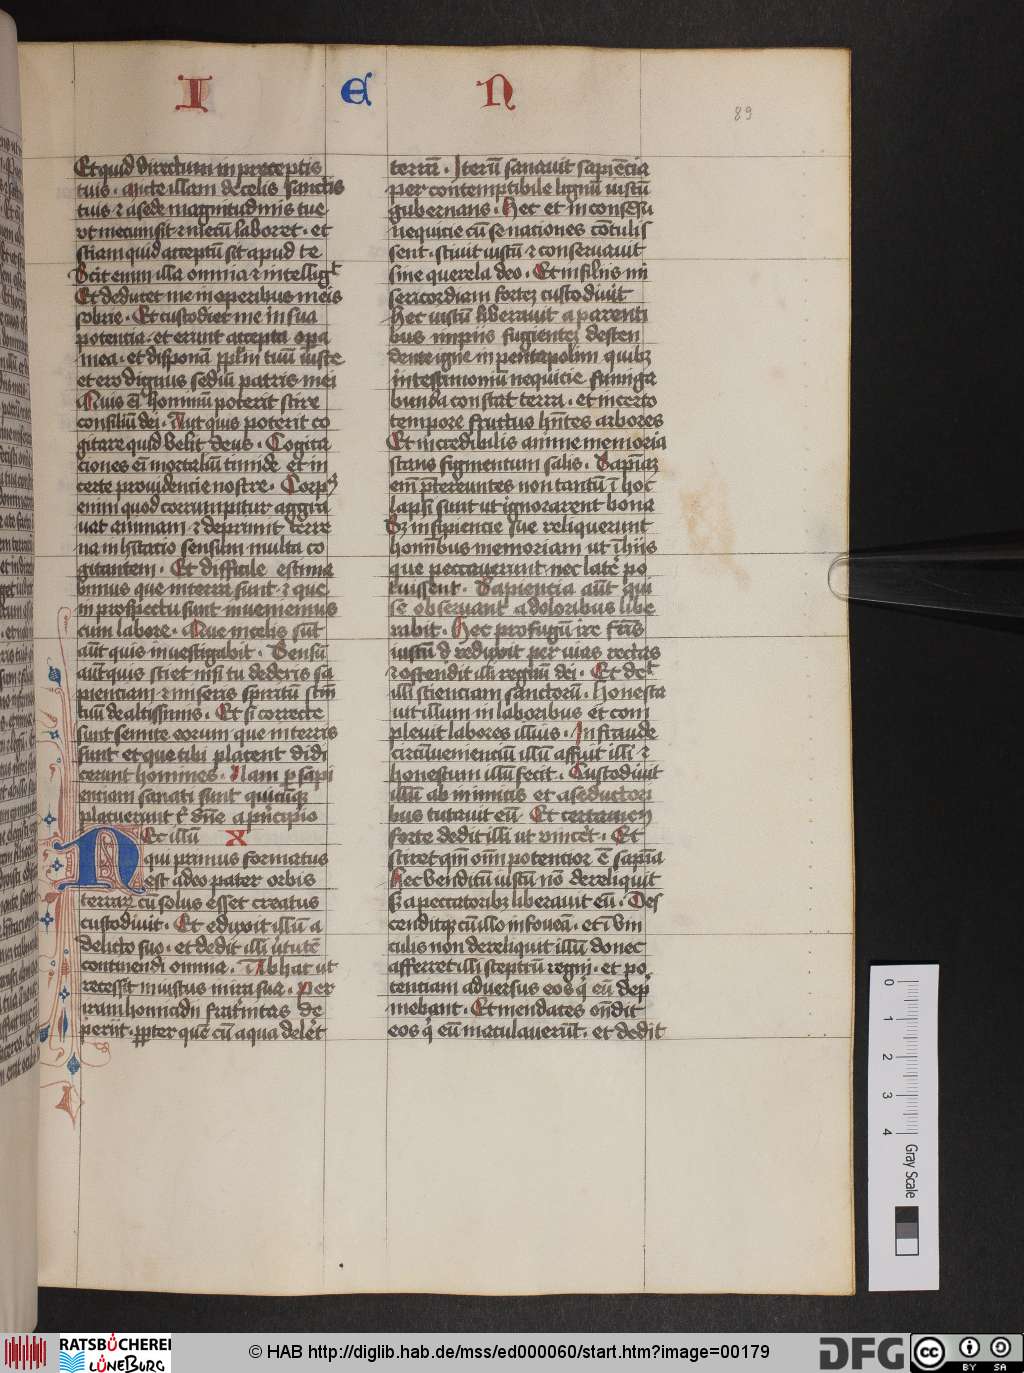 I E N
89
Et quid directum in preceptis
tuis . mitte illam de celis sanctis
tuis ⁊ a sede magnitudinis tue
vt mecum sit ⁊ mecū laboret . et
sciam quid acceptū sit apud te
Scit enim illa omnia ⁊ intelligᵗ
Et deducet me in operibus meis
sobrie . Et custodiet me in sua
potencia . et erunt accepta oṗa
mea . et disponā pplm̄ tuū iuste
et ero dignus sediū patris mei
Quis em̄ hominū poterit scire
consiliū dei . Aut quis poterit co
gitare quid velit deus . Cogita
ciones em̄ mortaliū timide et in
certe providencie nostre . Corpꝰ
enim quod corrumpitur aggra
uat animam ⁊ deprimit terre
na inhītacio sensum multa co
gitantem . Et difficile estima
bimus que in terra sunt . ⁊ que
in prospectu sunt inuenimus
cum labore . Que in celis sūt
aūt quis inuestigabit . Sensū
aūt quis sciet nisi tu dederis sa
pienciam ⁊ miseris spiritū scm̄
tuū de altissimis . Et si correcte
sunt semite eorum que in terris
sunt et que tibi placent didi
cerunt homines . Nam p sapi
enciam sanati sunt quicūqꝫ
placuerunt t̄ dn̄e a pⁱncipio
Ec illū X
qui primus formatus
est a deo pater orbis
terraꝝ cū solus esset creatus
custodiuit . Et eduxit illū a
delicto suo . et dedit illi v̓tutē
continendi omnia . Ab hac ut
recessit iniustus in ira sua . Per
iram homicidii fraternitas de
periit . ꝓpter quē cū aqua delēt
terrā . Iterū sanauit sapiēcia
per contemptibile lignū iustū
gubernans . Hec et in consēsu
nequicie cū se naciones cōtulis
sent . sciuit iustū ⁊ conseruauit
sine querela deo . Et in filiis mi
sericordiam fortez custodiuit
Hec iustū liberauit a pereunti
bus impiis fugientez desten
dente igne in pentapolim quibꝫ
in testimoniū nequicie fumiga
bunda constat terra . et incerto
tempore fructus hn̄tes arbores
Et incredibilis anime memoria
stans figmentum salis . Sapiaꝫ
em̄ p̄tereuntes non tantū ī hoc
lapsi sunt ut ignorarent bona
Sꝫ insipiencie sue reliquerunt
hominibus memoriam ut ī hiis
que peccauerunt nec late̓ po
tuissent . Sapiencia aūt qui
se obseruant a doloribus libe
rabit . Hec profugū ire fr̄is
iustū d reduxit per uias rectas
⁊ ostendit illi regnū dei . Et deᵗ
illi scienciam sanctorū . Honesta
uit illum in laboribus et com
pleuit labores illius . In fraude
circūueniencium illū affuit illi ⁊
honestum illū fecit . Custodiuit
illū ab inimicis et a seductori
bus tutauit eū . Et certamen
forte dedit illi ut vinceret . Et
sciret qm̄ oīm potencior ē sapīa
Hec venditū iustū nō dereliquit
Sꝫ a peccatoribꝫ liberauit eū . Des
cenditqꝫ cū illo in foueā . et ī vin
culis non dereliquit illū donec
afferret illi sceptrū regni . et po
tenciam aduersus eos q̓ eū dep̓
mebant . Et mendaces ondit
eos q̓ eū maculauerūt . et dedit
0 1 2 3 4 Gray Scale
RATSBÜCHEREI LÜNEBURG
© HAB http://diglib.hab.de/mss/ed000060/start.htm?image=00179
DFG
cc BY SA